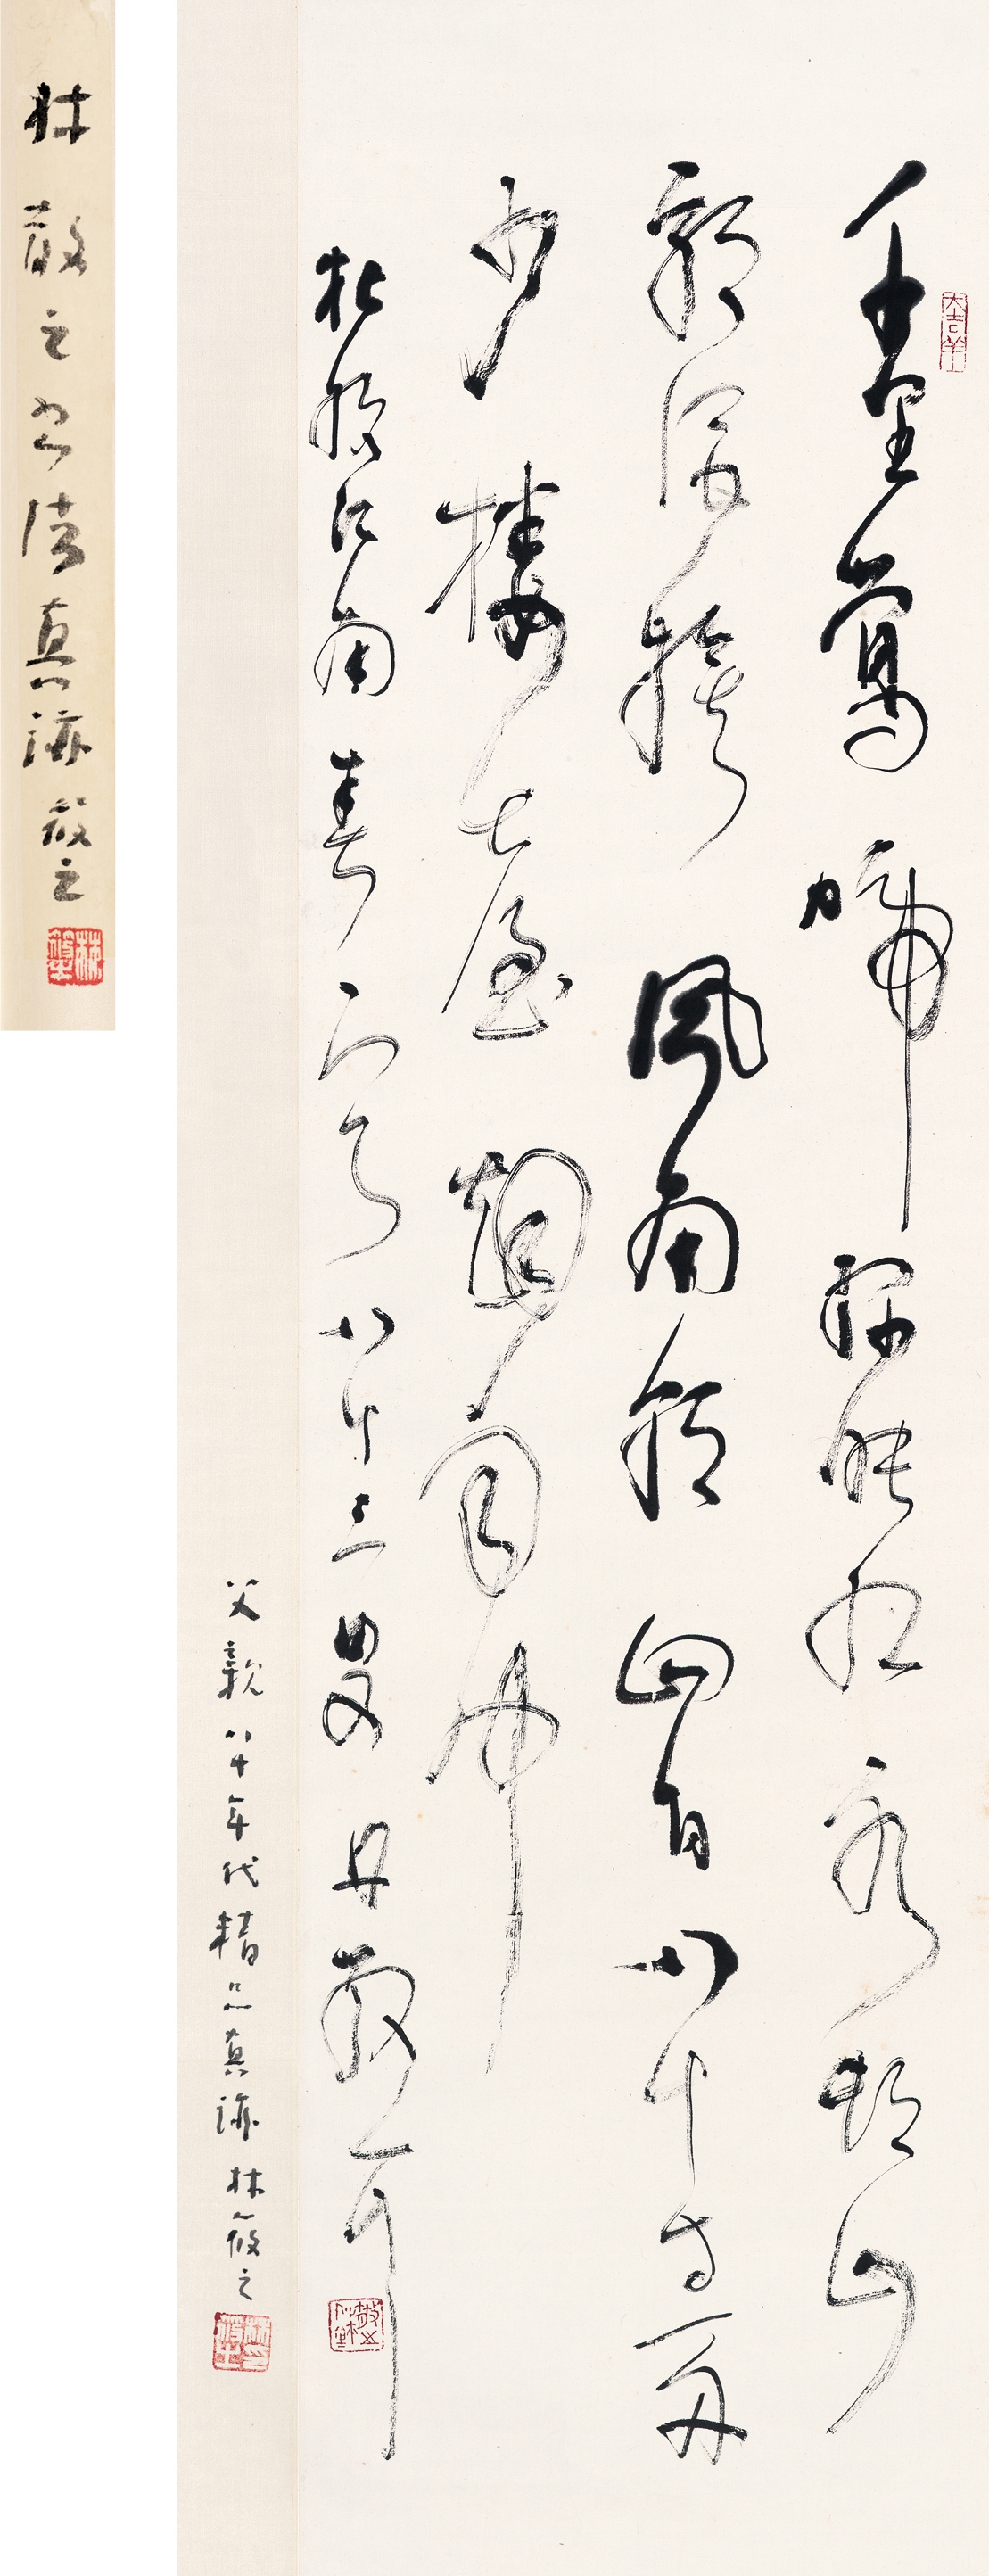 千里鶯啼綠映紅水村山
郭酒旗風南朝四百八十寺多
少樓臺烟雨中
杜牧江南春 八十三叟 散耳
父親八十年代精品真迹 林筱之
林散之书法真迹 筱之
大吉羊
林筱之